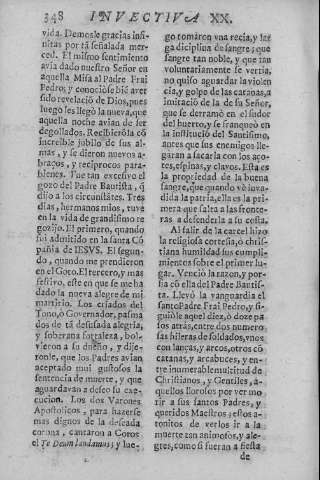 348 INVECTIVA XX.
vida. Demosle gracias infi-
nitas por tã señalada mer-
ced. El mismo sentimiento
avia dado nuestro Señor en
aquella Missa al Padre Frai
Pedro; y conociòse biẽ aver
sido revelaciõ de Dios, pues
luego les llegò la nueva, que
aquella noche avian de ser
degollados. Recibierõla cõ
increible jubilo de sus al-
mas, y se dieron nuevos a-
braços, y reciprocos para-
bienes. Fue tan excesivo el
gozo del Padre Bautista, q̃
dijo a los circunstãtes. Tres
dias, hermanos mios, tuve
en la vida de grandisimo re
gozijo. El primero, quando
fui admitido en la santa Cõ
pañia de IESVS. El segun-
do, quando me prendieron
en el Goto. El tercero, y mas
festivo, este en que se me ha
dado la nueva alegre de mi
martirio. Los criados del
Tono, ò Governador, pasma
dos de tã desusada alegria,
y soberana fortaleza, bol-
vieron a su dueño, y dije-
ronle, que los Padres avian
aceptado mui gustosos la
sentencia de muerte, y que
aguardavan a deseo su exe-
cucion. Los dos Varones
Apostolicos, para hazerse
mas dignos de la deseada
corona, cantaron a Coros
el Te Deum laudamus; y lue-
go tomaron vna recia, y lar
ga diciplina de sangre; que
sangre tan noble, y que tan
voluntariamente se vertia,
no quiso aguardar la violen
cia, y golpe de las catanas, a
imitaciõ de la de su Señor,
que se derramò en el sudor
del huerto, y se franqueò en
la instituciõ del Santisimo,
antes que sus enemigos lle-
garan a sacarla con los aço-
tes, espinas, y clavos. Esta es
la propiedad de la buena
sangre, que quando vè inva-
dida la patria, ella es la pri-
mera que salta a las fronte-
ras a defenderla a su costa.
Al salir de la carcel hizo
la religiosa cortesia, ò chris-
tiana humildad sus cumpli-
mientos sobre el primer lu-
gar. Venciò la razon, y por-
fia cõ ella del Padre Bautis-
ta. Llevò la vanguardia el
santo Padre Frai Pedro, y si-
guiòle aquel diez, ò doze pa-
sos atràs, entre dos numero
sas hileras de soldados, vnos
con lanças, y arcos, otros cõ
catanas, y arcabuces, y en-
tre inumerable multitud de
Christianos, y Gentiles, a-
quellos llorosos por ver mo
rir a sus santos Padres, y
queridos Maestros; estos a-
tonitos de verlos ir a la
muerte tan animosos, y ale-
gres, como si fueran a fiesta
de